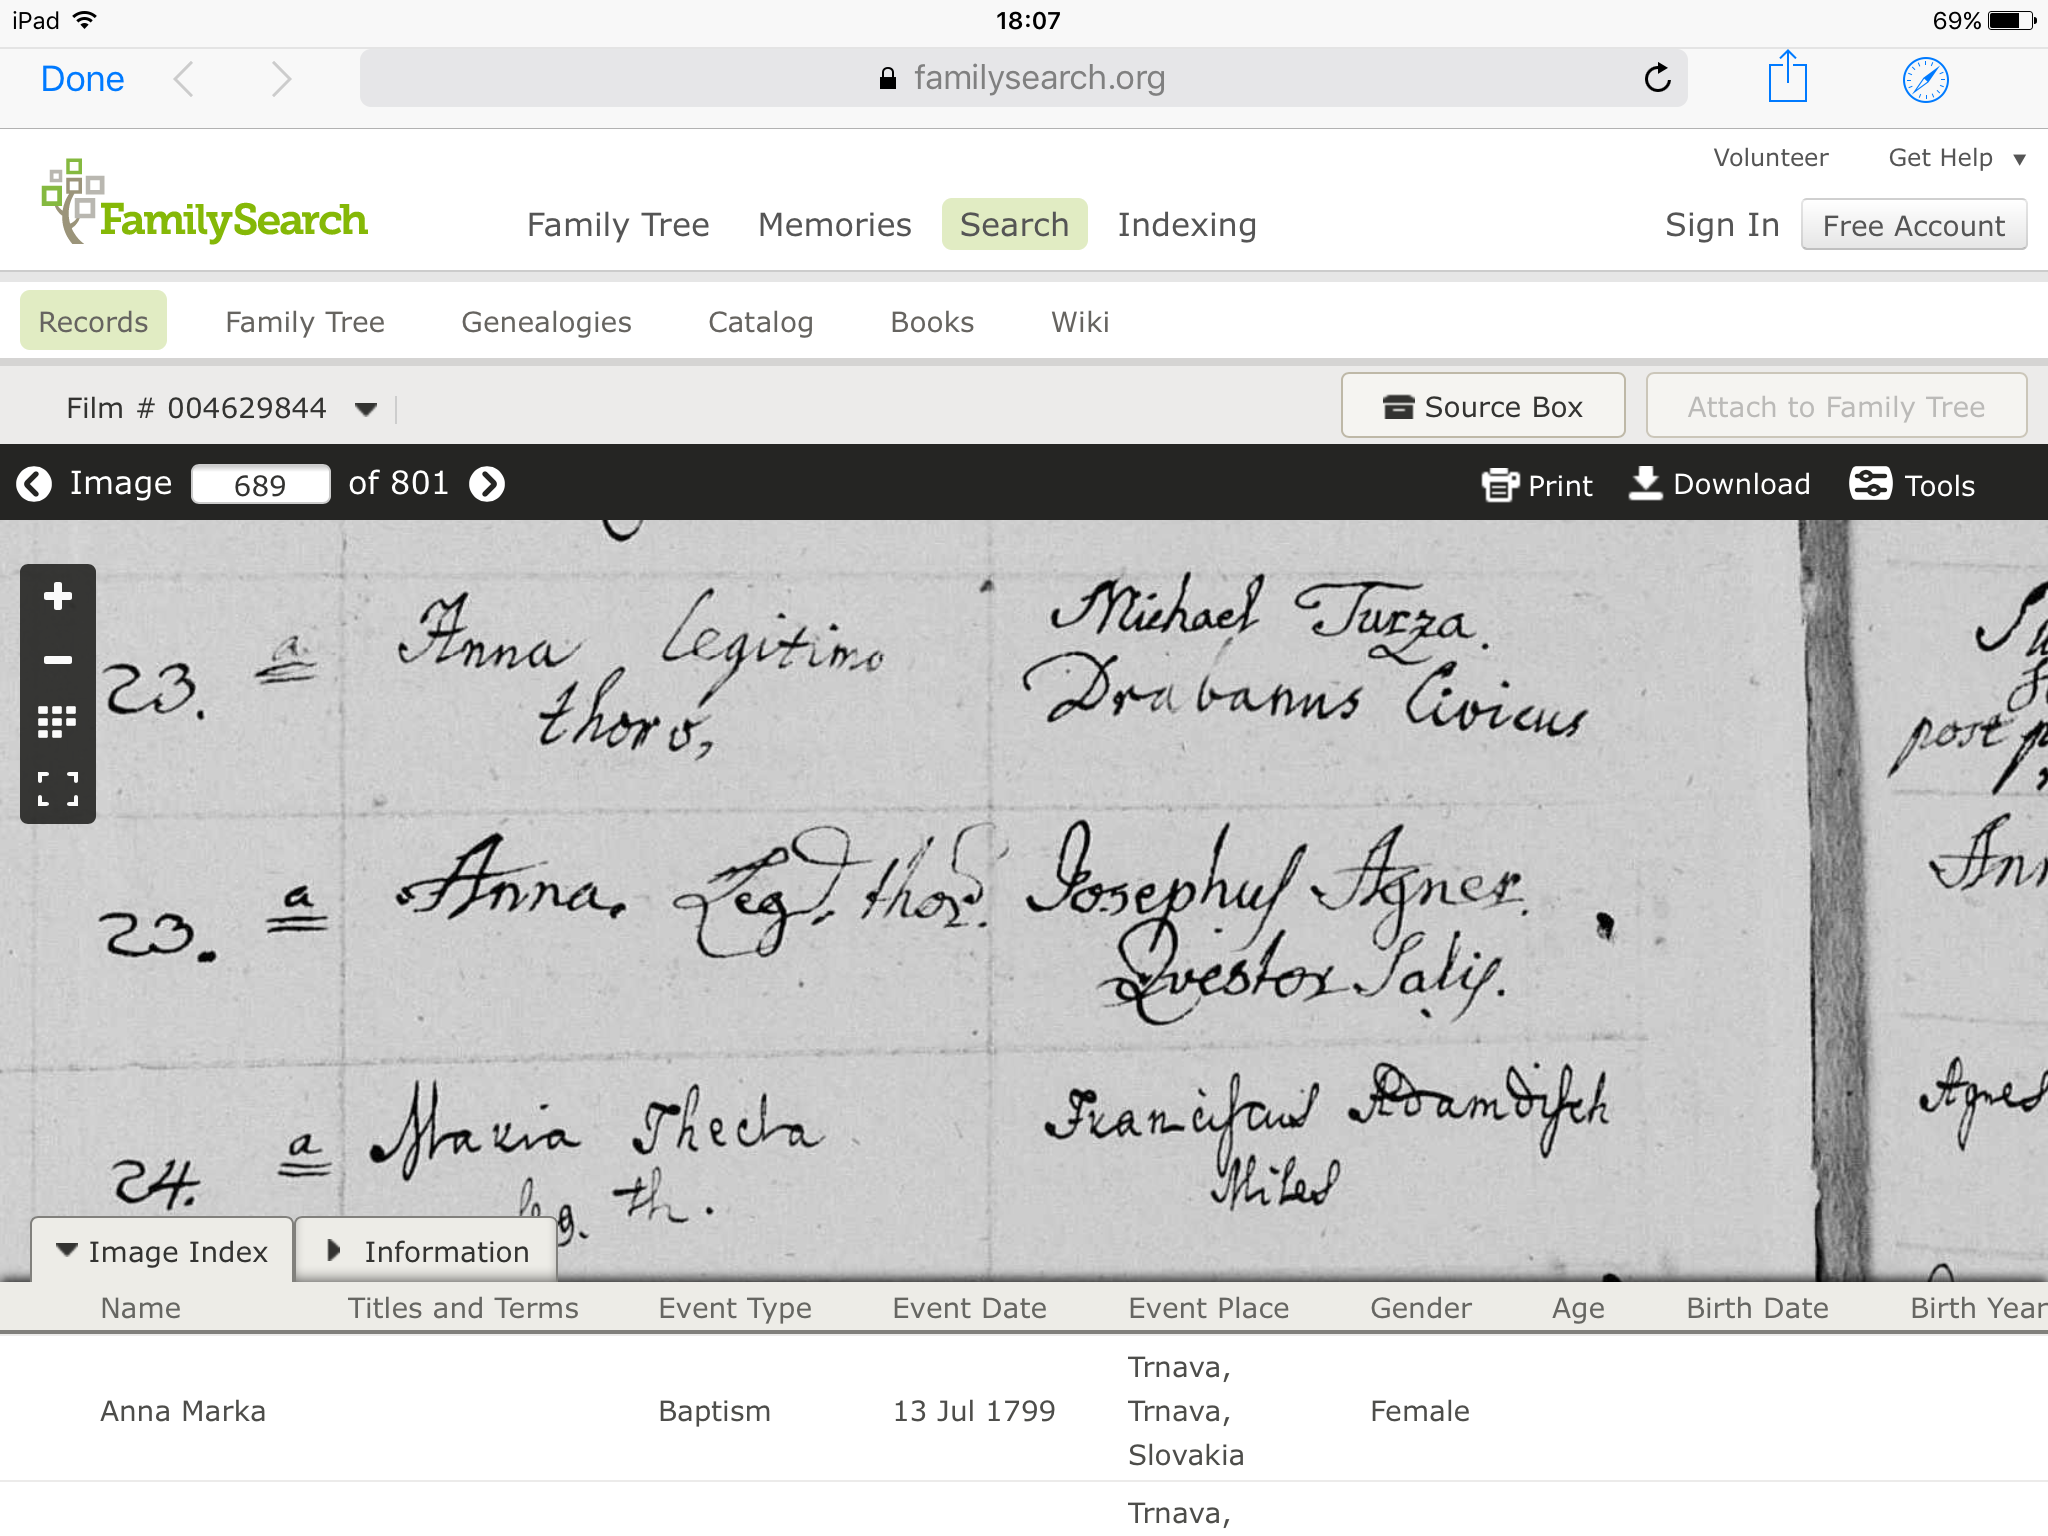 iPad 18:07 69%
Done familysearch.org
Volunteer Get Help
FamilySearch Family Tree Memories Search Indexing Sign In Free Account
Records Family Tree Genealogies Catalog Books Wiki
Film # 004629844 Source Box Attach to Family Tree
Image 689 of 801 Print Download Tools
23. a Anna Legitimo Michael Turza.
thoro, Drabanus Civicus
post
23. a Anna. Leg. thor. Josephus Agner.
Qvestor Salis.
24. a Maria Thecla Franciscus
leg. th. Miles
Agnes
Image Index Information
Name Titles and Terms Event Type Event Date Event Place Gender Age Birth Date Birth Year
Anna Marka Baptism 13 Jul 1799 Trnava, Female
Trnava,
Slovakia
Trnava,